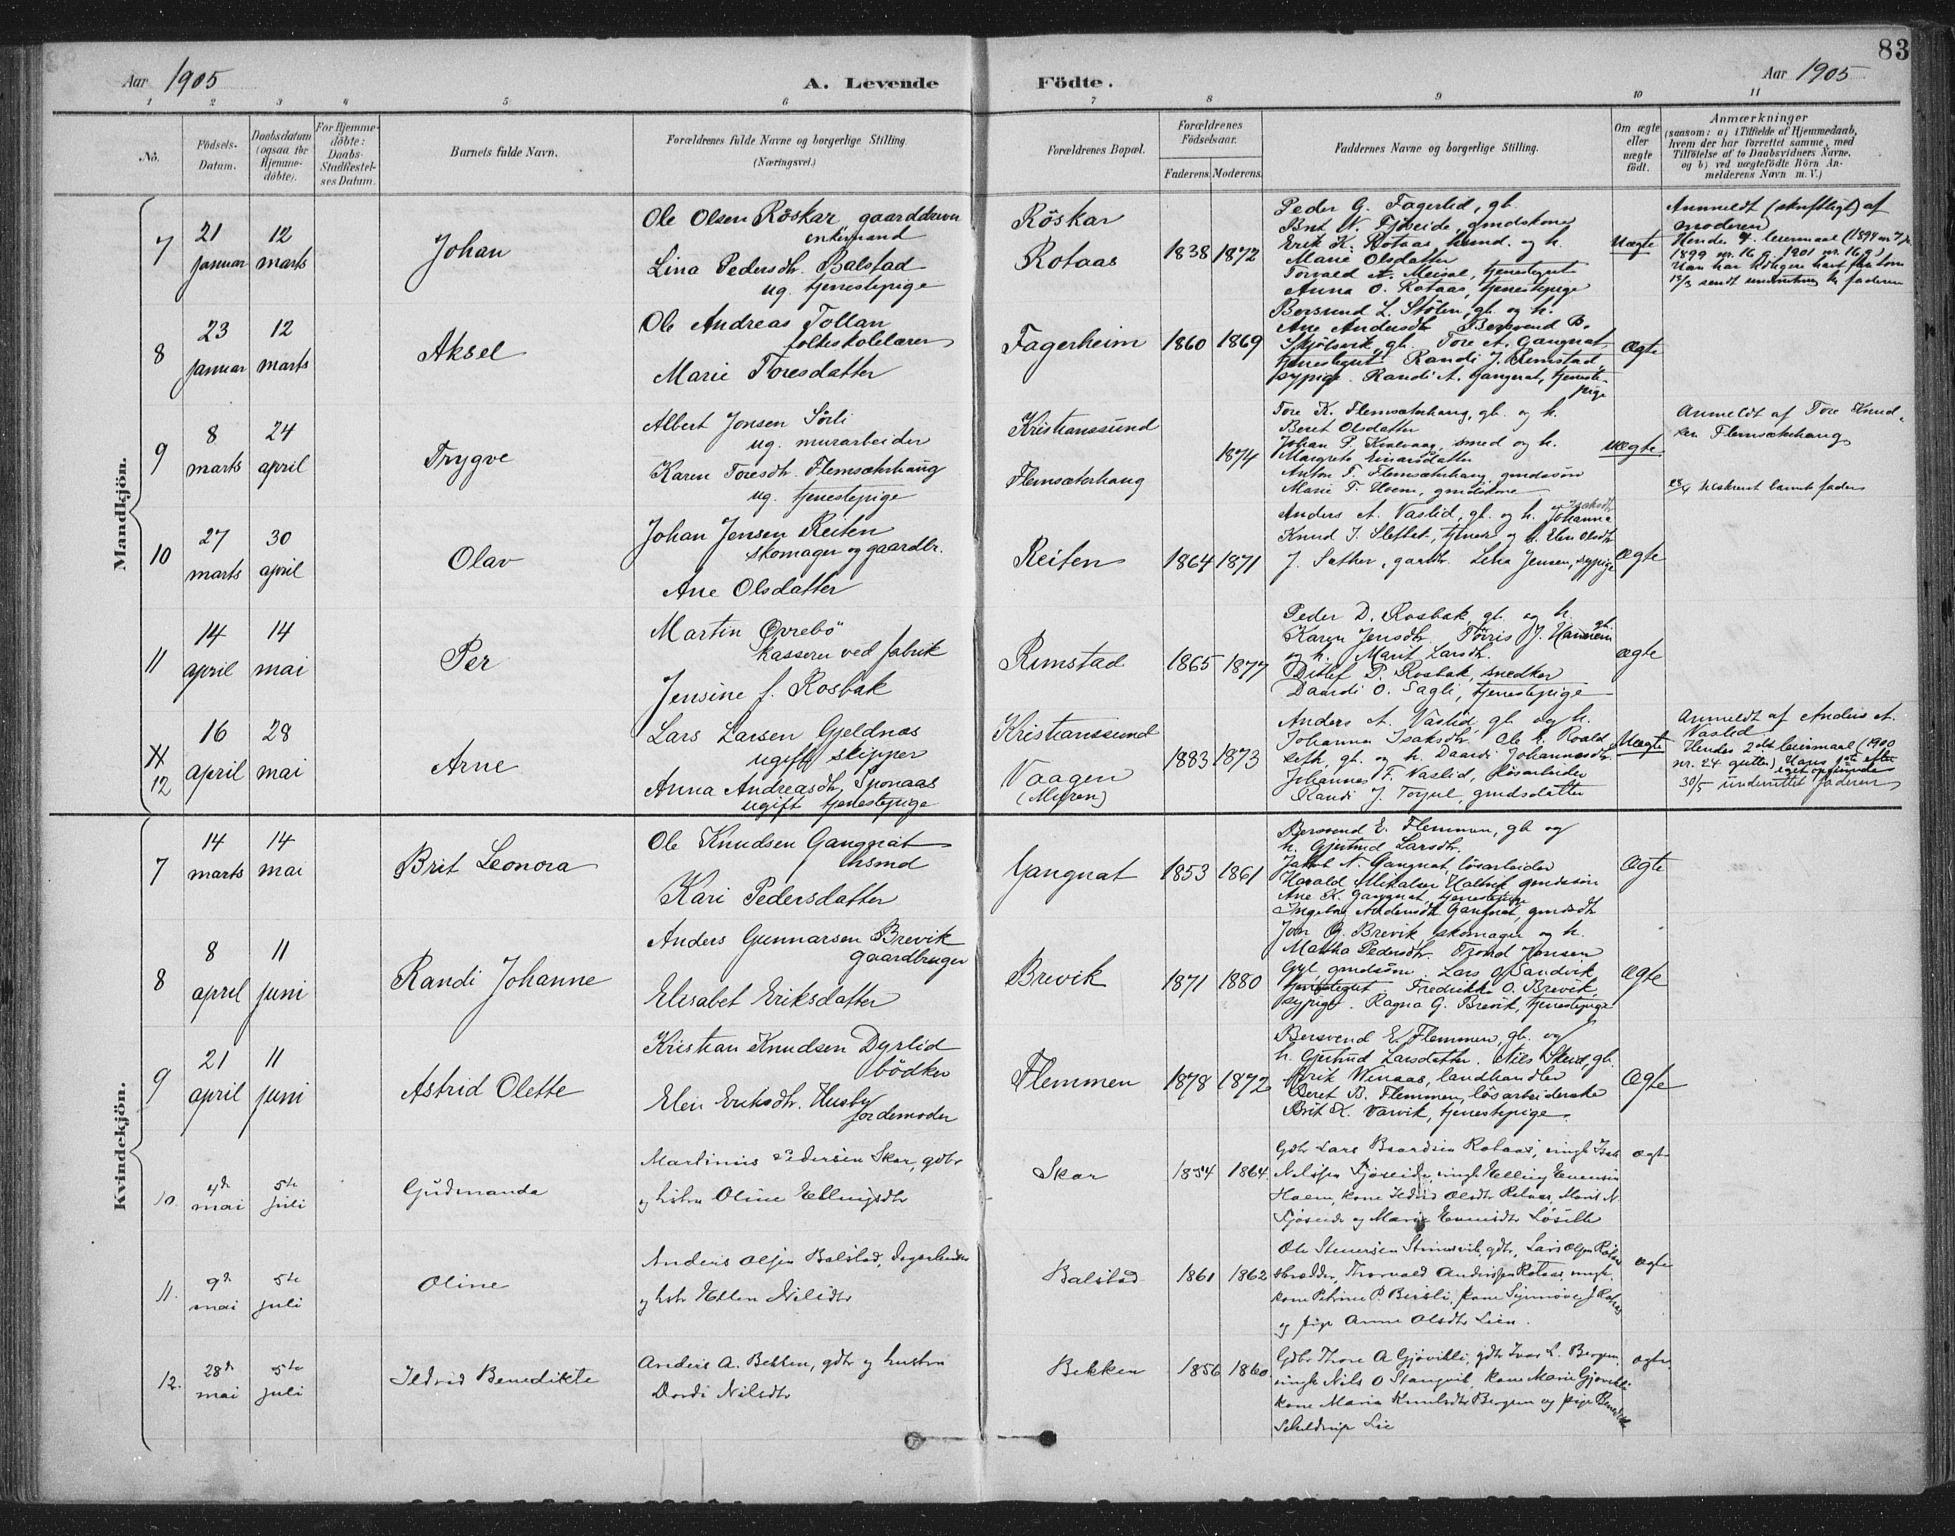 83
Aar 1905
A. Levende
Födte.
Aar 1905
1 2 3 4 5 6 7 8 9 10 11
No.
Födsels-
Datum.
Daabsdatum
(ogsaa for
Hjemme-
döbte).
For Hjemme-
döbte:
Daabs-
Stadfæstel-
ses Datum.
Barnets fulde Navn.
Forældrenes fulde Navne og borgerlige Stilling.
(Næringsvei.)
Forældrenes Bopæl.
Forældrenes
Födselsaar.
Faderens. Moderens.
Faddernes Navne og borgerlige Stilling.
Om ægte
eller
uægte
födt.
Anmærkninger
(saasom: a) i Tilfælde af Hjemmedaab,
hvem der har forrettet samme, med
Tilföielse af to Daabsvidners Navne,
og b) ved uægtefödte Börn An-
melderens Navn m. V.)
Mandkjön.
7
21
januar
12
marts
Johan
Ole Olsen Röskar gaarddreven
enkemand
Lina Pedersdtr. Balstad
ug. tjenestepige
Röskar
Rotaas
1838 1872
Peder G. Fagerlid, gb.
Brit N. Fjöseide, gmdskone
Erik K. Rotaas, husmd. og h.
Marie Olsdatter
Torvald A. Meisal, tjenestegut
Anna O. Rotaas, tjenestepige
Uægte
Anmeldt (skriftligt) af
moderen
Hendes 4. leiermaal (1894 nr. 7,
1899 nr. 16 og 1901 nr. 16 g)
Han har tidligere havt
13/3 sendt underretning til faderen
8
23
januar
12
marts
Aksel
Ole Andreas Tollan
folkeskolelærer
Marie Toresdatter
Fagerheim
1860 1869
Bersvend L. Stölen, gb. og h.
Ane Andersdtr. Bersvend B.
Skjölsvik, gb. Tore A. Gangnat,
tjenestegut Randi J. Rimstad
sypige. Randi A. Gangnat, tjeneste-
pige
Ægte
9
8
marts
24
april
Trygve
Albert Jonsen Sörli
ug. murarbeider
Karen Toresdtr. Flemsæterhaug
ug. tjenestepige
Kristianssund
Flemsæterhaug
1874
Tore K. Flemsæterhaug, gb. og h.
Beret Olsdatter
Johan P. smed og h.
Margrete Einarsdatter
Anton T. Flemsæterhaug, gmdssön
Marie T. Hoem, gmdskone
uægte
Anmeldt af Tore Knud-
sen Flemsæterhaug
28/4 tilskrevet barnets fader
10
27
marts
30
april
Olav
Johan Jensen Reiten
skomager og gaardbr.
Ane Olsdatter
Reiten
1864 1871
Anders A. Vaslid, gb. og h. Johanne
Isaksdtr
Knud J. Slettet, tjener og h. Elen Olsdtr
J. Sæther, gaardbr. Lina Jensen, sypige
Ægte
11
14
april
14
mai
Per
Martin Övrebö
kasserer ved fabrik
Jensine f. Rosbak
Rimstad
1865 1877
Peder D. Rosbak, gb. og h.
Karen Jensdtr. Törris J. Hannem gb.
og h. Marit Larsdtr.
Ditlef P. Rosbak, snedker
Daardi O. Sagli, tjenestepige
ægte
12
16
april
28
mai
Arne
Lars Larsen Gjeldnæs
ugift skipper
Anna Andreasdtr. Sponaas
ugift tjenestepige
Kristianssund
Vaagen
(Myren)
1883 1873
Anders A. Vaslid, gb. og h.
Johanna Isaksdtr. Ole K. Roald-
seth, gb. og h. Daardi Johannesdtr.
Johannes F. Vaslid, lösarbeider
Randi J. gmdsdatter
Uægte
Anmeldt af Anders A.
Vaslid
Hendes 2det leiermaal (1900
nr. 24 gutter) Hans 1ste efter
eget opgivende
30/5 underrettet faderen
Kvindekjön.
7
14
marts
14
mai
Brit Leonora
Ole Knudsen Gangnat
husmd
Kari Pedersdatter
Gangnat
1853 1861
Bersvend E. Flemmen, gb. og
h. Gjertrud Larsdtr.
Jakob N. Gangnat, lösarbeider
Harald Mikalsen Halsvik gmdssön
Ane K. Gangnat, tjenestepige
Ingeborg Andersdtr. Gangnat, gmdsdtr
Ægte
8
8
april
11
juni
Randi Johanne
Anders Gunnarsen Brevik
gaardbruger
Elisabet Eriksdatter
Brevik
1871 1880
Jon G. Brevik skomager og h.
Martha Pedersdtr. Trond Jensen
Gyl, gmdssön. Lars O. Sandvik
tjenestegut. Fredrikke O. Brevik
sypige. Ragna G. Brevik, tjenestepige
Ægte
9
21
april
11
juni
Astrid Olette
Kristian Knudsen Dyrlid
bödker
Elen Eriksdtr. Husby
jordemoder
Flemmen
1878 1872
Bersvend E. Flemmen, gb. og
h. Gjertrud Larsdatter. Nils gb.
Erik Winaas, landhandler
Beret B. Flemmen, lösarbeiderske
Brit K. Varvik, tjenestepige.
Ægte
10.
4de
mai
5te
juli
Gudmanda
Martinus Pedersen Skar, gdbr
og hstru Oline Ellingsdtr
Skar
1854 1864
Gdbr Lars Baardsen Rotaas, ungk
Nilssen Fjöseide, ungk Elling Evensen
Hoem, kone Ildrid Olsdtr Rotaas, Marit N
Fjöseide og Marie Evensdtr Löseth
ægte
11.
9de
mai
5te
juli
Oline
Anders Olsen Balstad, dagarbeider
og hstr Ellen Nilsdtr
Balstad
1861 1862
Ole Steversen gdbr, Lars Olsen
skrædder, Thorvald Anderssen Rotaas, ungk.
kone Petrine P. Bersli, kone Synnöve J Rotaas
og pige Anne Olsdtr Lien.
ægte
12.
28de
mai
5te
juli
Ildrid Benedikte
Anders A. Bekken, gdbr og hustru
Dordi Nilsdtr
Bekken
1856 1860
Gdbr Thore A Gjövikli, gdbr Ivar L. Bergem,
ungk Nils O Stangvik, kone Marie Gjövikli
kone Maria Knudsdtr Bergem og pige Benedikte
Schuldrup Lie
ægte